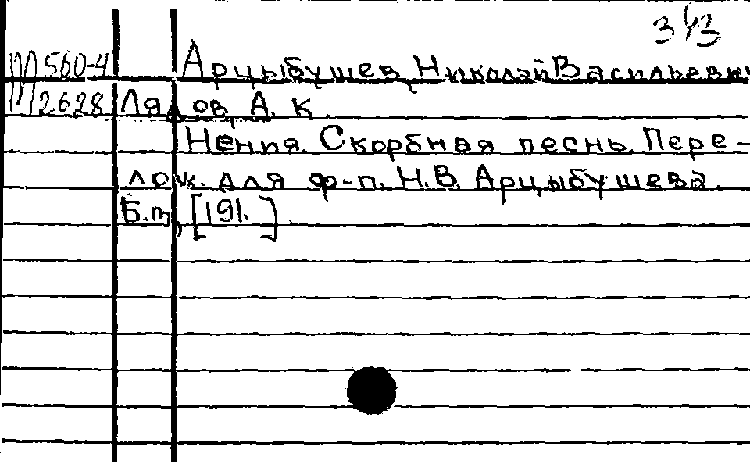 343
М560-4 Арцыбушев, Николай Васильевич
М2628 Лядов, А. К.
Нения. Скорбная песнь. Пере-
лож. для ф-п. Н.В. Арцыбушева.
Б.м., [191. ]